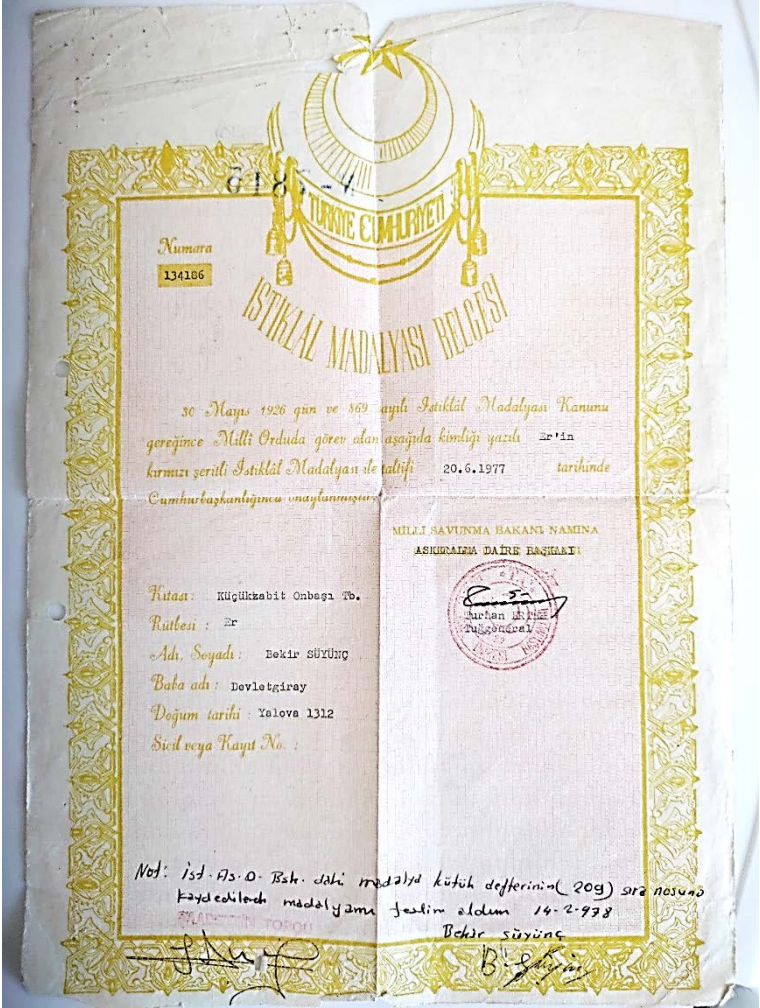 TÜRKİYE CUMHURİYETİ
Numara
134186
İSTİKLÂL MADALYASI BELGESİ
30 Mayıs 1926 gün ve 869 sayılı İstiklâl Madalyası Kanunu
gereğince Milli Orduda görev alan aşağıda kimliği yazılı Er'in
kırmızı şeritli İstiklâl Madalyası ile taltifi 20.6.1977 tarihinde
Cumhurbaşkanlığınca onaylanmıştır
MİLLİ SAVUNMA BAKANI NAMINA
ASKERALMA DAİRE BAŞKANI
Turhan
Tuğgeneral
Kıtası: Küçükzabit Onbaşı Tb.
Rütbesi : Er
Adı, Soyadı : Bekir SÜYÜNÇ
Baba adı : Devletgiray
Doğum tarihi : Yalova 1312
Sicil veya Kayıt No. :
Not: İst. As. D. Bşk. daki madalya kütük defterinin (209) sıra nosuna
kaydedilerek madalyamı teslim aldım 14-2-978
Bekir süyünç